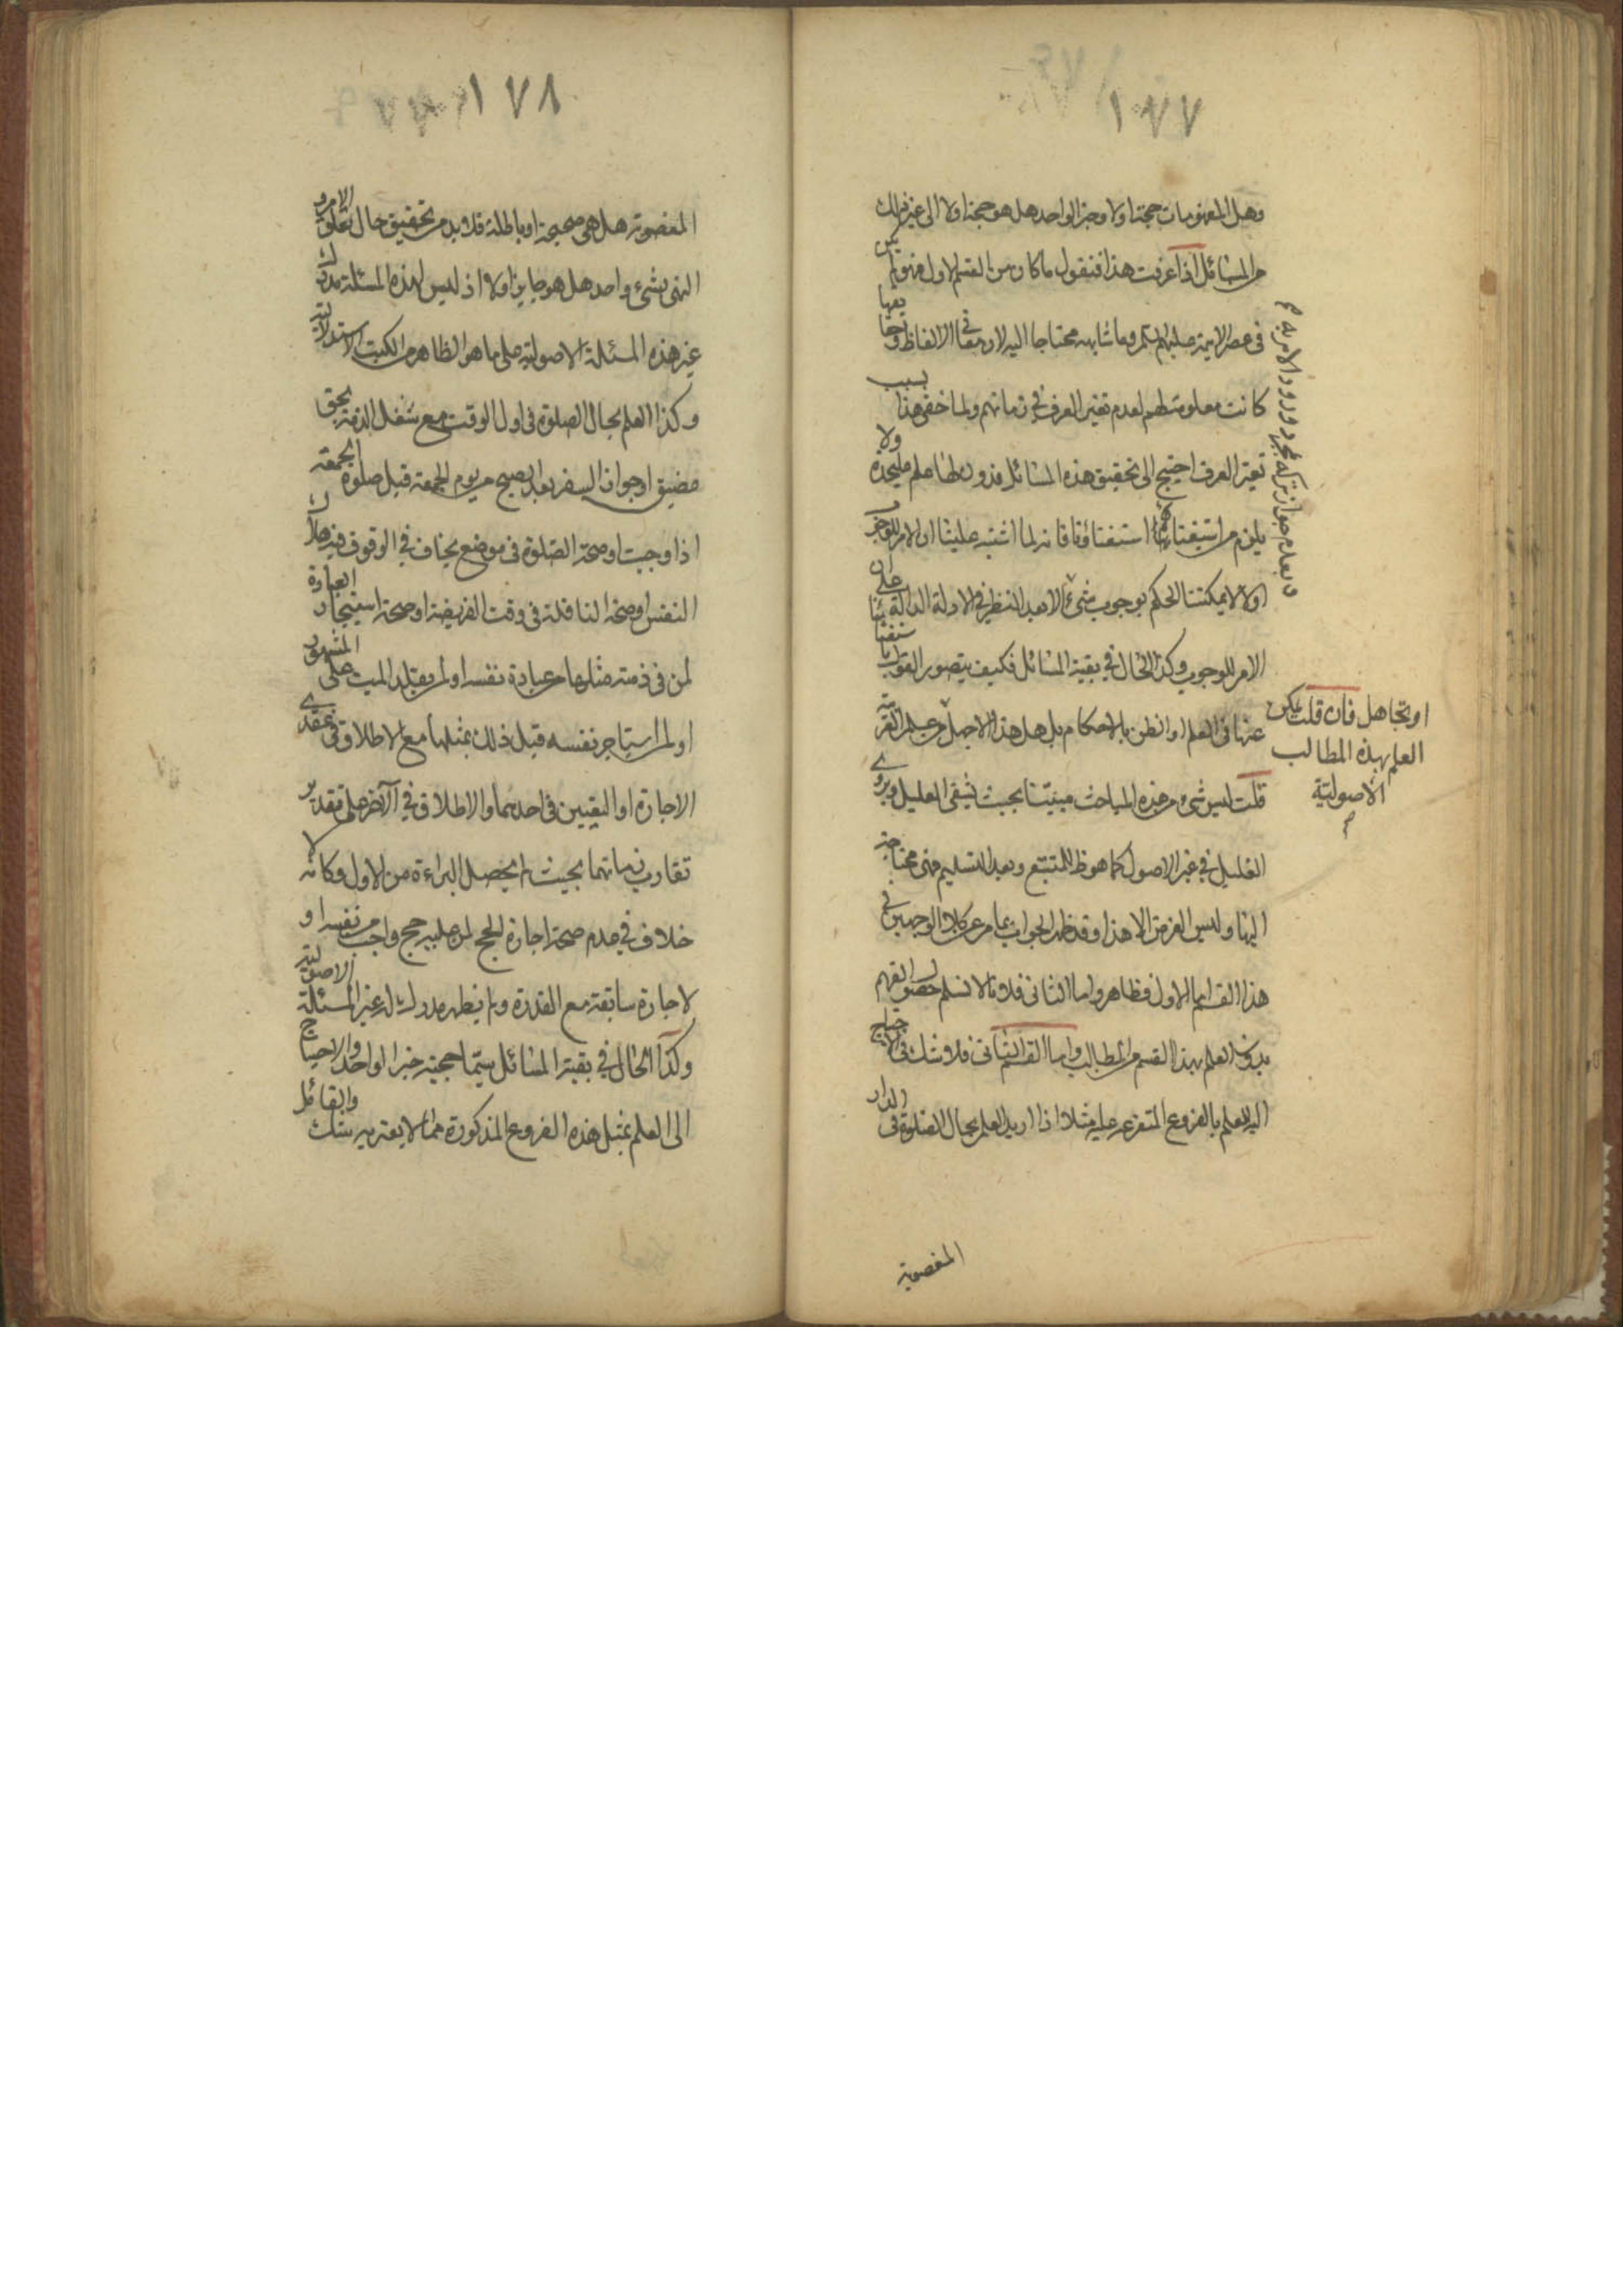 ١٧٧
وهل المفهومات حجة اولا وخبر الواحد هل هو حجة اولا الى غير ذلك
من المسائل اذا عرفت هذا فنقول ما كان من القسم الاول فهو ليس
فى عصر الائمة عليهم السلم وما شابهه محتاجا اليه لان معانى الالفاظ وحقايقها
كانت معلومة لهم لعدم تغير العرف فى زمانهم ولما خفى هذا بسبب
تغير العرف احتيج الى تحقيق هذه المسائل فدون لها علم عليحدة ولا
يلزم من استغنائهم استغناؤنا فانه لما اشتبه علينا ان الامر للوجوب
اولا لا يمكننا الحكم بوجوب شىء الا بعد النظر فى الادلة الدالة على ان
الامر للوجوب وكذا الحال فى بقية المسائل فكيف يتصور القول باستغنائنا
عنها فى العلم او الظن بالاحكام بل هل هذا الا جهل
قلت ليس شىء من هذه المباحث مبينا بحيث يشفى العليل ويروى
الغليل فى غير الاصول كما هو ظ للمتتبع وبعد التسليم فهى محتاجة
اليها وليس الغرض الا هذا وقد ظهر الجواب بما مر عن كلا الوجهين فى
هذا القسم اما الاول فظاهر واما الثانى فلانا لا نسلم حصول الفهم
بدون العلم بهذا القسم من المطالب واما القسم الثانى فلا شك فى الاحتياج
اليه للعلم بالفروع المتفرعة عليه مثلا اذا اريد العلم بحال الصلوة فى الدار
المغصوبة
بعدم جواز تركه بمجرد ورود الامر به
او تجاهل فان قلت يمكن
العلم بهذه المطالب
الاصولية
١٧٨
المغصوبة هل هى صحيحة او باطلة فلا بد من تحقيق حال تعلق الامر و
النهى بشىء واحد هل هو جايز اولا اذ ليس لهذه المسئلة مدرك
غير هذه المسئلة الاصولية على ما هو الظاهر من الكتب الاستدلالية
وكذا العلم بحال الصلوة فى اول الوقت مع شغل الذمة بحق
مضيق او جواز السفر بعد الصبح من يوم الجمعة قبل صلوة الجمعة
اذا وجبت او صحة الصلوة فى موضع يخاف فى الوقوف فيه هلاك
النفس او صحة النافلة فى وقت الفريضة او صحة استيجار العبادة
لمن فى ذمته مثلها من عبادة نفسه او لم يقلد الميت على المشهور
او لم استاجر نفسه قبل ذلك بمثلها مع الاطلاق فى عقدى
الاجارة او التعيين فى احدهما والاطلاق فى الآخر على تقدير
تقارب زمانهما بحيث لم يحصل البراءة من الاول وكانه لا
خلاف فى عدم صحة اجارة الحج لمن عليه حج واجب من نفسه او
لاجارة سابقة مع القدرة ولم يظهر مدرك له غير المسئلة الاصولية
وكذا الحال فى بقية المسائل سيما حجية خبر الواحد والاحتياج
الى العلم بمثل هذه الفروع المذكورة مما لا يعتريه شك والقائل